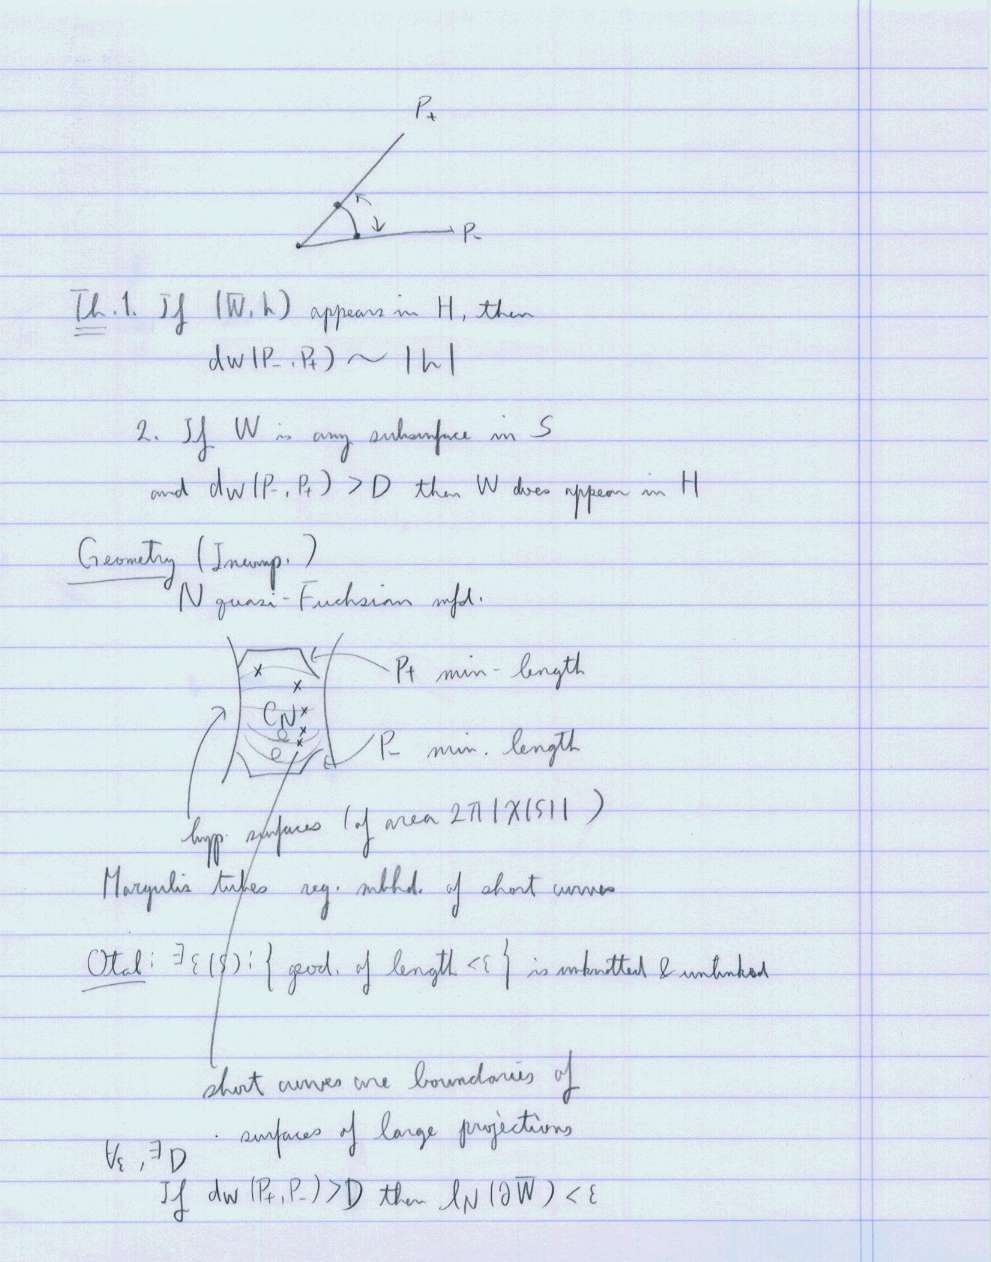 P₊
P₋
Th. 1. If (W, h) appears in H, then
d_W(P₋, P₊) ~ |h|
2. If W is any subsurface in S
and d_W(P₋, P₊) > D then W does appear in H
Geometry (Incomp.)
N quasi-Fuchsian mfd.
P₊ min-length
C_N
P₋ min. length
hyp. surfaces (of area 2π|χ(S)|)
Margulis tubes reg. nbhd. of short curves
Otal: ∃ε(S): { geod. of length <ε } is unknotted & unlinked
short curves are boundaries of
surfaces of large projections
∀ε, ∃D
If d_W(P₊, P₋) > D then l_N(∂W̅) < ε